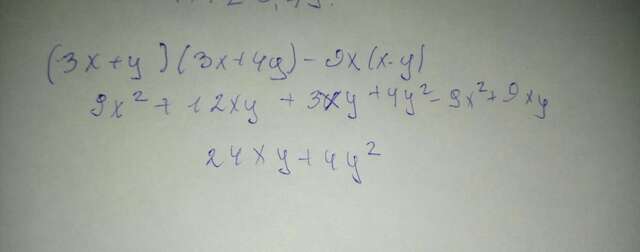 (3x+y)(3x+4y)-9x(x-y)
9x²+12xy+3xy+4y²-9x²+9xy
24xy+4y²